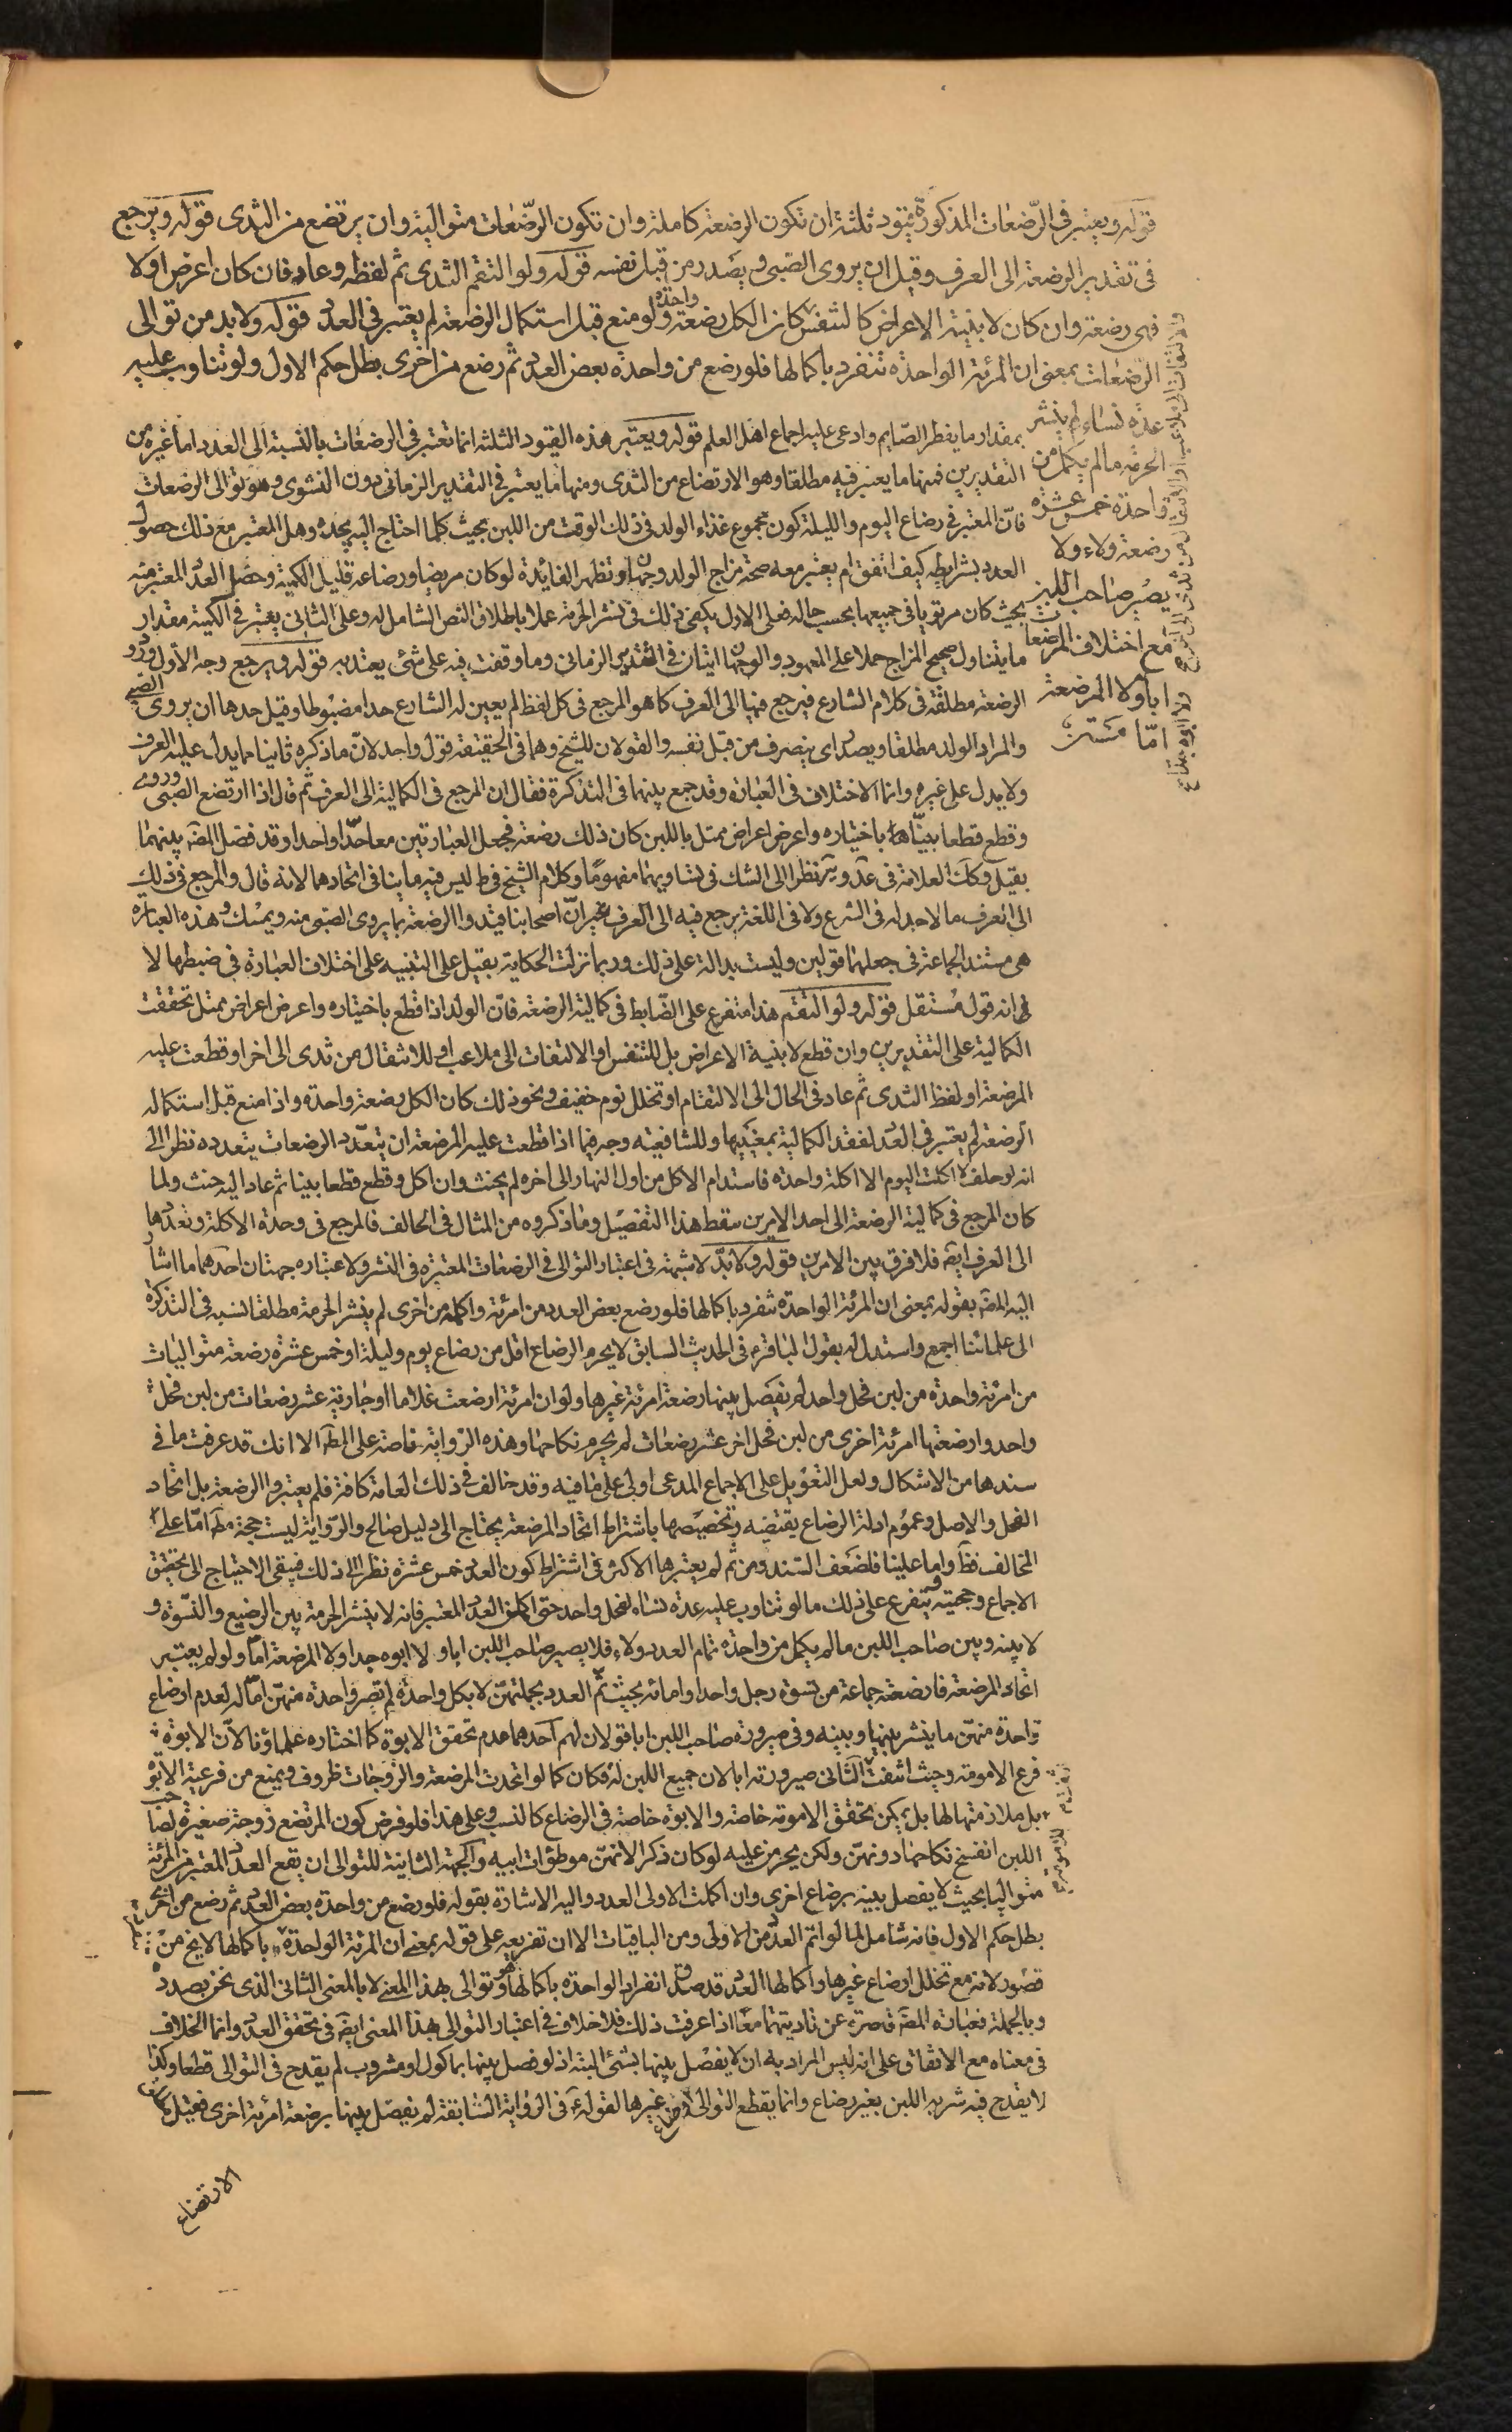 قوله ويعتبر في الرضعات المذكورة قيود ثلثة ان تكون الرضعة كاملة وان تكون الرضعات متوالية وان يرتضع من الثدى قوله ويرجع
فى تقدير الرضعة الى العرف وقيل ان يروى الصبى ويصدر من قبل نفسه قوله ولو التقم الثدى ثم لفظه وعاد فان كان اعرض اولا
فهى رضعة وان كان لا بنية الاعراض كالنفس كان الكل رضعة واحدة ولو منع قبل استكمال الرضعة لم يعتبر في العدد قوله ولا بد من توالى
الرضعات بمعنى ان المرئة الواحدة تنفرد باكمالها فلو رضع من واحدة بعض العدد ثم رضع من اخرى بطل حكم الاول ولو تناوب عليه
عدة نساء لم ينشر
الحرمة ما لم يكمل من
واحدة خمس عشرة
رضعة ولاء ولا
يصير صاحب اللبن
مع اختلاف المرضعات
ابا ولا المرضعة
اما
بمقدار ما يفطر الصايم وادعى عليه اجماع اهل العلم قوله ويعتبر هذه القيود الثلثة انما تعتبر في الرضعات بالنسبة الى العدد اما غيره من
التقديرين فمنها ما يعتبر فيه مطلقا وهو الارتضاع من الثدى ومنها ما يعتبر في التقدير الزمانى دون النشوى وهو توالى الرضعات
فان المعتبر في رضاع اليوم والليلة كون مجموع غذاء الولد في ذلك الوقت من اللبن بحيث كلما احتاج اليه يجده وهل المعتبر مع ذلك حصول
العدد بشرايطه كيف اتفق ام يعتبر معه صحة مزاج الولد وجهان وتظهر الفائدة لو كان مريضا ورضاعه قليل الكمية وحصل العدد المعتبر منه
بحيث كان مرتويا في جميعها بحسب حاله فعلى الاول يكفى ذلك في نشر الحرمة عملا باطلاق النص الشامل له وعلى الثانى يعتبر في الكمية مقدار
ما يتناول صحيح المزاج حملا على المعهود والوجهان اتيان في التقدير الزمانى وما وقفت فيه على شئ يعتد به قوله ويرجع وجه الاول ورود
الرضعة مطلقة في كلام الشارع فيرجع فيها الى العرف كما هو المرجع في كل لفظ لم يعين له الشارع حدا مضبوطا وقيل حدها ان يروى الصبى
والمراد الولد مطلقا ويصدر اى ينصرف من قبل نفسه والقولان للشيخ وهما في الحقيقة قول واحد لان ما ذكره ثانيا مما يدل عليه العرف
ولا يدل على غيره وانما الاختلاف في العبارة وقد جمع بينهما في التذكرة فقال ان المرجع في الكمالية الى العرف ثم قال اذا ارتضع الصبى وروى
وقطع قطعا بينا باختياره واعرض اعراض ممتل باللبن كان ذلك رضعة فجعل العبارتين معا حدا واحدا وقد فصل المصـ بينهما
بقيل وكذا العلامة في عد وير نظرا الى الشك في تساويهما مفهوما وكلام الشيخ في ط ليس فيه ما ينافى اتحادهما لانه قال والمرجع في ذلك
الى العرف ما لا حد له في الشرع ولا في اللغة يرجع فيه الى العرف غير ان اصحابنا قيدوا الرضعة بما يروى الصبى منه ويمسك وهذه العبارة
هى مستند الجماعة في جعلهما قولين وليست بدالة على ذلك وربما نزلت الحكاية بقيل على التنبيه على اختلاف العبارة في ضبطها لا
في انه قول مستقل قوله ولو التقم هذا متفرع على الضابط في كمالية الرضعة فان الولد اذا قطع باختياره واعرض اعراض ممتل تحققت
الكمالية على التقديرين وان قطع لا بنية الاعراض بل للتنفس او الالتفات الى ملاعب او للانتقال من ثدى الى اخر او قطعت عليه
المرضعة او لفظ الثدى ثم عاد في الحال الى الالتقام او تخلل نوم خفيف ونحو ذلك كان الكل رضعة واحدة واذا منع قبل استكماله
الرضعة لم يعتبر في العدد لفقد الكمالية بمعنييها وللشافعية وجه فيما اذا قطعت عليه المرضعة ان يتعدد الرضعات بتعدده نظرا الى
انه لو حلف لا اكلت اليوم الا اكلة واحدة فاستدام الاكل من اول النهار الى اخره لم يحنث وان اكل وقطع قطعا بينا ثم عاد اليه حنث ولما
كان المرجع في كمالية الرضعة الى احد الامرين سقط هذا التفصيل وما ذكروه من المثال في الحالف فالمرجع في وحدة الاكلة وتعددها
الى العرف ايضا فلا فرق بين الامرين قوله ولا بد لا شبهة في اعتبار التوالى في الرضعات المعتبرة في النشر ولاعتباره جهتان احدهما ما اشار
اليه المصـ بقوله بمعنى ان المرئة الواحدة تنفرد باكمالها فلو رضع بعض العدد من امرئة واكمله من اخرى لم ينشر الحرمة مطلقا نسبه في التذكرة
الى علمائنا اجمع واستدل له بقول الباقر ع في الحديث السابق لا يحرم الرضاع اقل من رضاع يوم وليلة او خمس عشرة رضعة متواليات
من امرئة واحدة من لبن فحل واحد لم يفصل بينها رضعة امرئة غيرها ولو ان امرئة ارضعت غلاما او جارية عشر رضعات من لبن فحل
واحد وارضعتها امرئة اخرى من لبن فحل اخر عشر رضعات لم يحرم نكاحها وهذه الرواية ناصة على المط الا انك قد عرفت ما في
سندها من الاشكال ولعل التعويل على الاجماع المدعى اولى على ما فيه وقد خالف في ذلك العامة كافة فلم يعتبروا الرضعة بل اتحاد
الفحل والاصل وعموم ادلة الرضاع يقتضيه وتخصيصها باشتراط اتحاد المرضعة يحتاج الى دليل صالح والرواية ليست حجة مط اما على
المخالف فظ واما علينا فلضعف السند ومن ثم لم يعتبرها الاكثر في اشتراط كون العدد خمس عشرة نظرا الى ذلك فيبقى الاحتياج الى تحقيق
الاجماع وحجيته ويتفرع على ذلك ما لو تناوب عليه عدة نساء لفحل واحد حتى اكملن العدد المعتبر فانه لا ينشر الحرمة بين الرضيع والنسوة و
لا بينه وبين صاحب اللبن ما لم يكمل من واحدة تمام العدد ولاء فلا يصير صاحب اللبن ابا و لا ابوه جدا ولا المرضعة اما ولو لم يعتبر
اتحاد المرضعة فارضعه جماعة من نسوة رجل واحد او امائه بحيث تم العدد بجملتهن لا بكل واحدة لم تصر واحدة منهن اما له لعدم ارضاع
واحدة منهن ما ينشر بينها وبينه وفي صيرورة صاحب اللبن ابا قولان لهم احدهما عدم تحقق الابوة كما اختاره علماؤنا لان الابوة
فرع الامومة وحيث انتفت الثانى صيرورته ابا لان جميع اللبن له فكان كما لو اتحدت المرضعة والزوجات ظروف ويمنع من فرعية الابوة
بل ملازمتها لها بل يمكن تحقق الامومة خاصة والابوة خاصة في الرضاع كالنسب وعلى هذا فلو فرض كون المرتضع زوجة صغيرة لصاحب
اللبن انفسخ نكاحها دونهن ولكن يحرمن عليه لو كان ذكرا لانهن موطؤات ابيه والجهة الثانية للتوالى ان يقع العدد المعتبر من المرئة
متواليا بحيث لا يفصل بينه برضاع اخرى وان اكملت الاولى العدد واليه الاشارة بقوله فلو رضع من واحدة بعض العدد ثم رضع من اخرى
بطل حكم الاول فانه شامل لما لو اتم العدد من الاولى ومن الباقيات الا ان تفريعه على قوله بمعنى ان المرئة الواحدة باكمالها لا يخ من
قصور لانه مع تخلل ارضاع غيرها واكمالها العدد قد صدق انفراد الواحدة باكمالها وهو توالى بهذا المعنى لا بالمعنى الثانى الذى نحن بصدده
وبالجملة فعبارة المصـ قاصرة عن تاديتهما معا اذا عرفت ذلك فلا خلاف في اعتبار التوالى بهذا المعنى ايضا في تحقق العدد وانما الخلاف
في معناه مع الاتفاق على انه ليس المراد به ان لا يفصل بينها بشئ البتة اذ لو فصل بينها بماكول او مشروب لم يقدح في التوالى قطعا وكذا
لا يقدح فيه شربه اللبن بغير رضاع وانما يقطع التوالى رضاع غيرها لقوله ع في الرواية السابقة لم يفصل بينها برضعة امرئة اخرى فقيل
الارتضاع